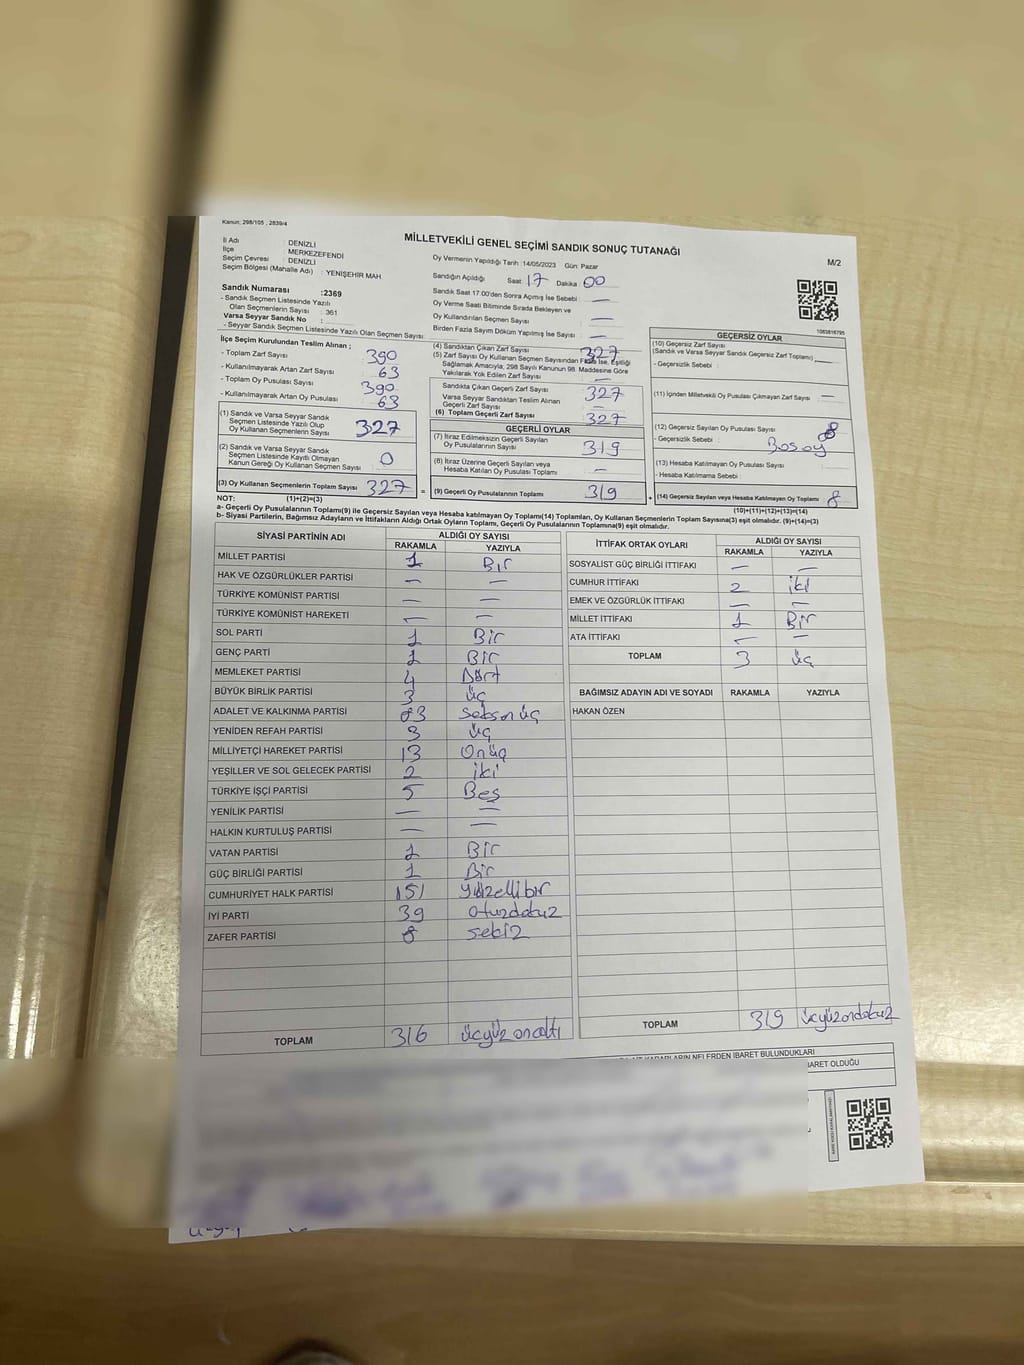 Kanun: 298/105 , 2839/4
MİLLETVEKİLİ GENEL SEÇİMİ SANDIK SONUÇ TUTANAĞI
M/2
İl Adı : DENİZLİ
İlçe : MERKEZEFENDİ
Seçim Çevresi : DENİZLİ
Seçim Bölgesi (Mahalle Adı) : YENİŞEHİR MAH.
Sandık Numarası :2369
- Sandık Seçmen Listesinde Yazılı
Olan Seçmenlerin Sayısı : 361
Varsa Seyyar Sandık No :
- Seyyar Sandık Seçmen Listesinde Yazılı Olan Seçmen Sayısı :
İlçe Seçim Kurulundan Teslim Alınan ;
- Toplam Zarf Sayısı 390
- Kullanılmayarak Artan Zarf Sayısı 63
- Toplam Oy Pusulası Sayısı 390
- Kullanılmayarak Artan Oy Pusulası 63
(1) Sandık ve Varsa Seyyar Sandık
Seçmen Listesinde Yazılı Olup
Oy Kullanan Seçmenlerin Sayısı 327
(2) Sandık ve Varsa Seyyar Sandık
Seçmen Listesinde Kayıtlı Olmayan
Kanun Gereği Oy Kullanan Seçmen Sayısı 0
(3) Oy Kullanan Seçmenlerin Toplam Sayısı 327
Oy Vermenin Yapıldığı Tarih :14/05/2023 Gün: Pazar
Sandığın Açıldığı Saat 17 Dakika 00
Sandık Saat 17:00'den Sonra Açılmış İse Sebebi : —
Oy Verme Saati Bitiminde Sırada Bekleyen ve
Oy Kullandırılan Seçmen Sayısı : —
Birden Fazla Sayım Döküm Yapılmış İse Sayısı : —
(4) Sandıktan Çıkan Zarf Sayısı 327
(5) Zarf Sayısı Oy Kullanan Seçmen Sayısından Fazla İse, Eşitliği
Sağlamak Amacıyla; 298 Sayılı Kanunun 98. Maddesine Göre
Yakılarak Yok Edilen Zarf Sayısı —
Sandıkta Çıkan Geçerli Zarf Sayısı 327
Varsa Seyyar Sandıktan Teslim Alınan
Geçerli Zarf Sayısı —
(6) Toplam Geçerli Zarf Sayısı 327
GEÇERLİ OYLAR
(7) İtiraz Edilmeksizin Geçerli Sayılan
Oy Pusulalarının Sayısı 319
(8) İtiraz Üzerine Geçerli Sayılan veya
Hesaba Katılan Oy Pusulası Toplamı —
= (9) Geçerli Oy Pusulalarının Toplamı 319
1083816795
GEÇERSİZ OYLAR
(10) Geçersiz Zarf Sayısı
(Sandık ve Varsa Seyyar Sandık Geçersiz Zarf Toplamı) —
- Geçersizlik Sebebi :
(11) İçinden Milletvekili Oy Pusulası Çıkmayan Zarf Sayısı —
(12) Geçersiz Sayılan Oy Pusulası Sayısı 8
- Geçersizlik Sebebi : Bos oy
(13) Hesaba Katılmayan Oy Pusulası Sayısı
- Hesaba Katılmama Sebebi :
+ (14) Geçersiz Sayılan veya Hesaba Katılmayan Oy Toplamı 8
NOT: (1)+(2)=(3) (10)+(11)+(12)+(13)=(14)
a- Geçerli Oy Pusulasının Toplamı(9) ile Geçersiz Sayılan veya Hesaba Katılmayan Oy Toplamı(14) Toplamları, Oy Kullanan Seçmenlerin Toplam Sayısına(3) eşit olmalıdır. (9)+(14)=(3)
b- Siyasi Partilerin, Bağımsız Adayların ve İttifakların Aldığı Ortak Oyların Toplamı, Geçerli Oy Pusulalarının Toplamına(9) eşit olmalıdır.
SİYASİ PARTİNİN ADI ALDIĞI OY SAYISI
RAKAMLA YAZIYLA
MİLLET PARTİSİ 1 Bir
HAK VE ÖZGÜRLÜKLER PARTİSİ — —
TÜRKİYE KOMÜNİST PARTİSİ — —
TÜRKİYE KOMÜNİST HAREKETİ — —
SOL PARTİ 1 Bir
GENÇ PARTİ 1 Bir
MEMLEKET PARTİSİ 4 Dört
BÜYÜK BİRLİK PARTİSİ 3 üç
ADALET VE KALKINMA PARTİSİ 83 seksen üç
YENİDEN REFAH PARTİSİ 3 üç
MİLLİYETÇİ HAREKET PARTİSİ 13 Onüç
YEŞİLLER VE SOL GELECEK PARTİSİ 2 iki
TÜRKİYE İŞÇİ PARTİSİ 5 Beş
YENİLİK PARTİSİ — —
HALKIN KURTULUŞ PARTİSİ — —
VATAN PARTİSİ 1 Bir
GÜÇ BİRLİĞİ PARTİSİ 1 Bir
CUMHURİYET HALK PARTİSİ 151 yüzellibir
İYİ PARTİ 39 otuzdokuz
ZAFER PARTİSİ 8 sekiz
TOPLAM 316 üçyüz onaltı
İTTİFAK ORTAK OYLARI ALDIĞI OY SAYISI
RAKAMLA YAZIYLA
SOSYALİST GÜÇ BİRLİĞİ İTTİFAKI — —
CUMHUR İTTİFAKI 2 iki
EMEK VE ÖZGÜRLÜK İTTİFAKI — —
MİLLET İTTİFAKI 1 Bir
ATA İTTİFAKI — —
TOPLAM 3 üç
BAĞIMSIZ ADAYIN ADI VE SOYADI RAKAMLA YAZIYLA
HAKAN ÖZEN
TOPLAM 319 üçyüzondokuz
KARARLARIN NELERDEN İBARET BULUNDUKLARI
İBARET OLDUĞU